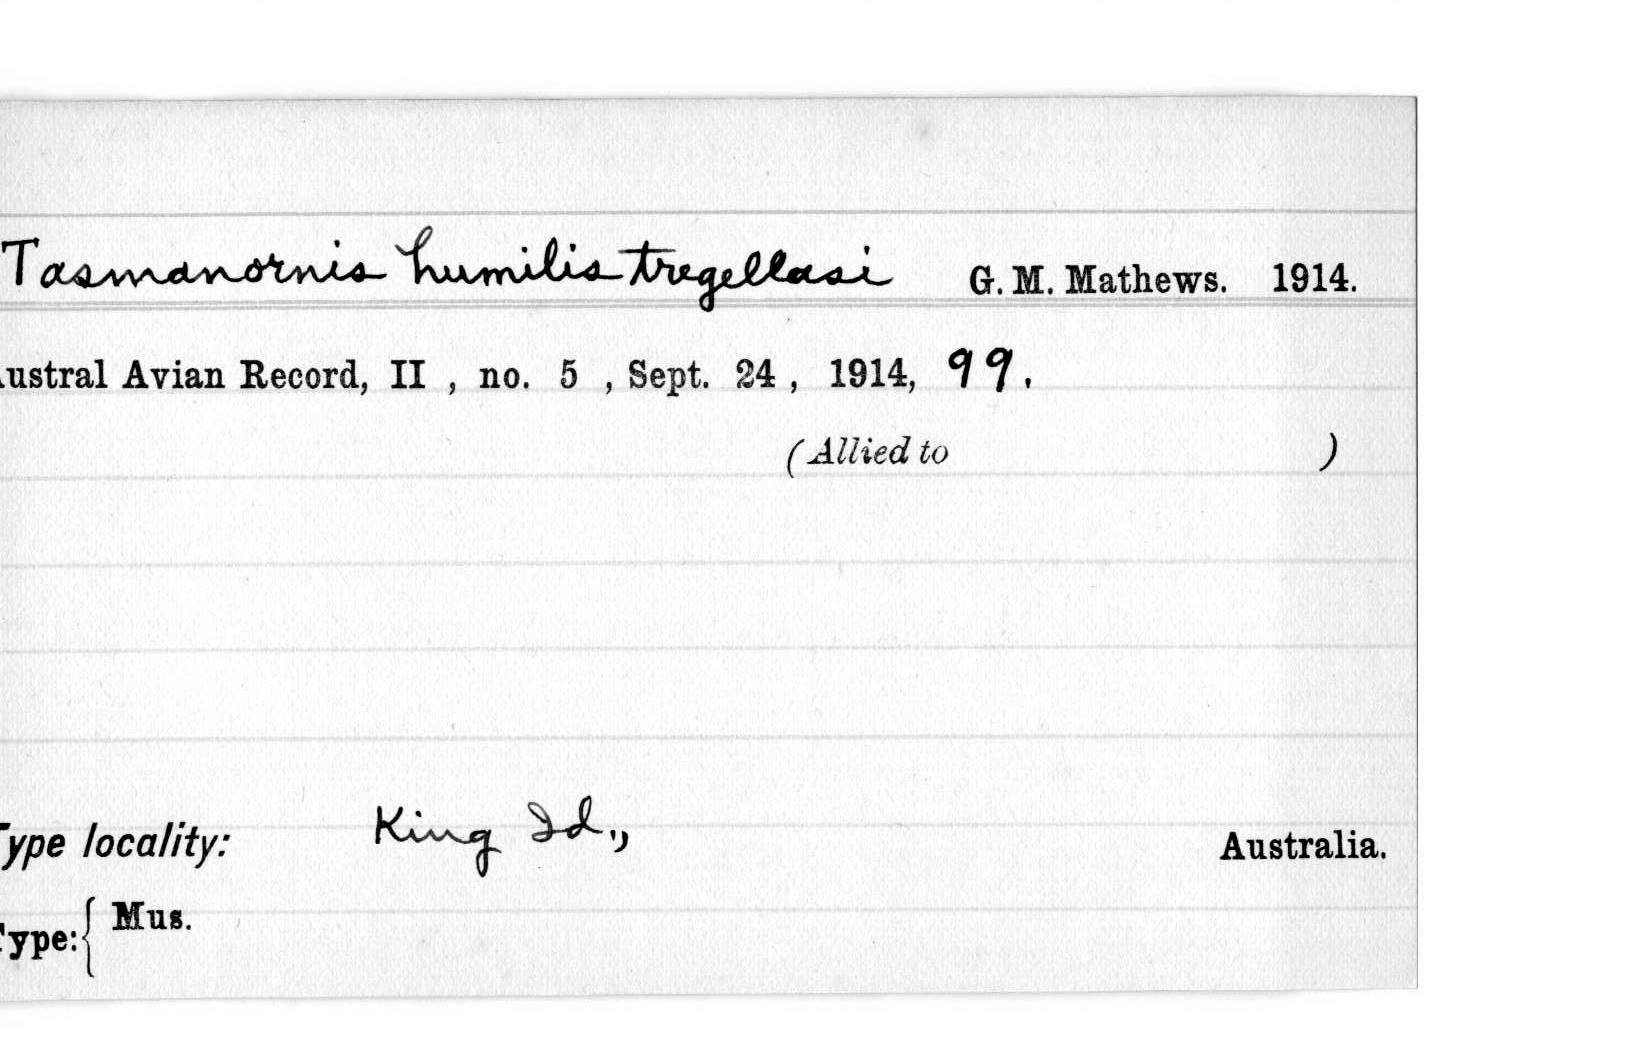 Tasmanornis humilis tregellasi G. M. Mathews. 1914.
ustral Avian Record, II , no. 5 , Sept. 24 , 1914, 99.
(Allied to )
Type locality: King Id., Australia.
Type: { Mus.